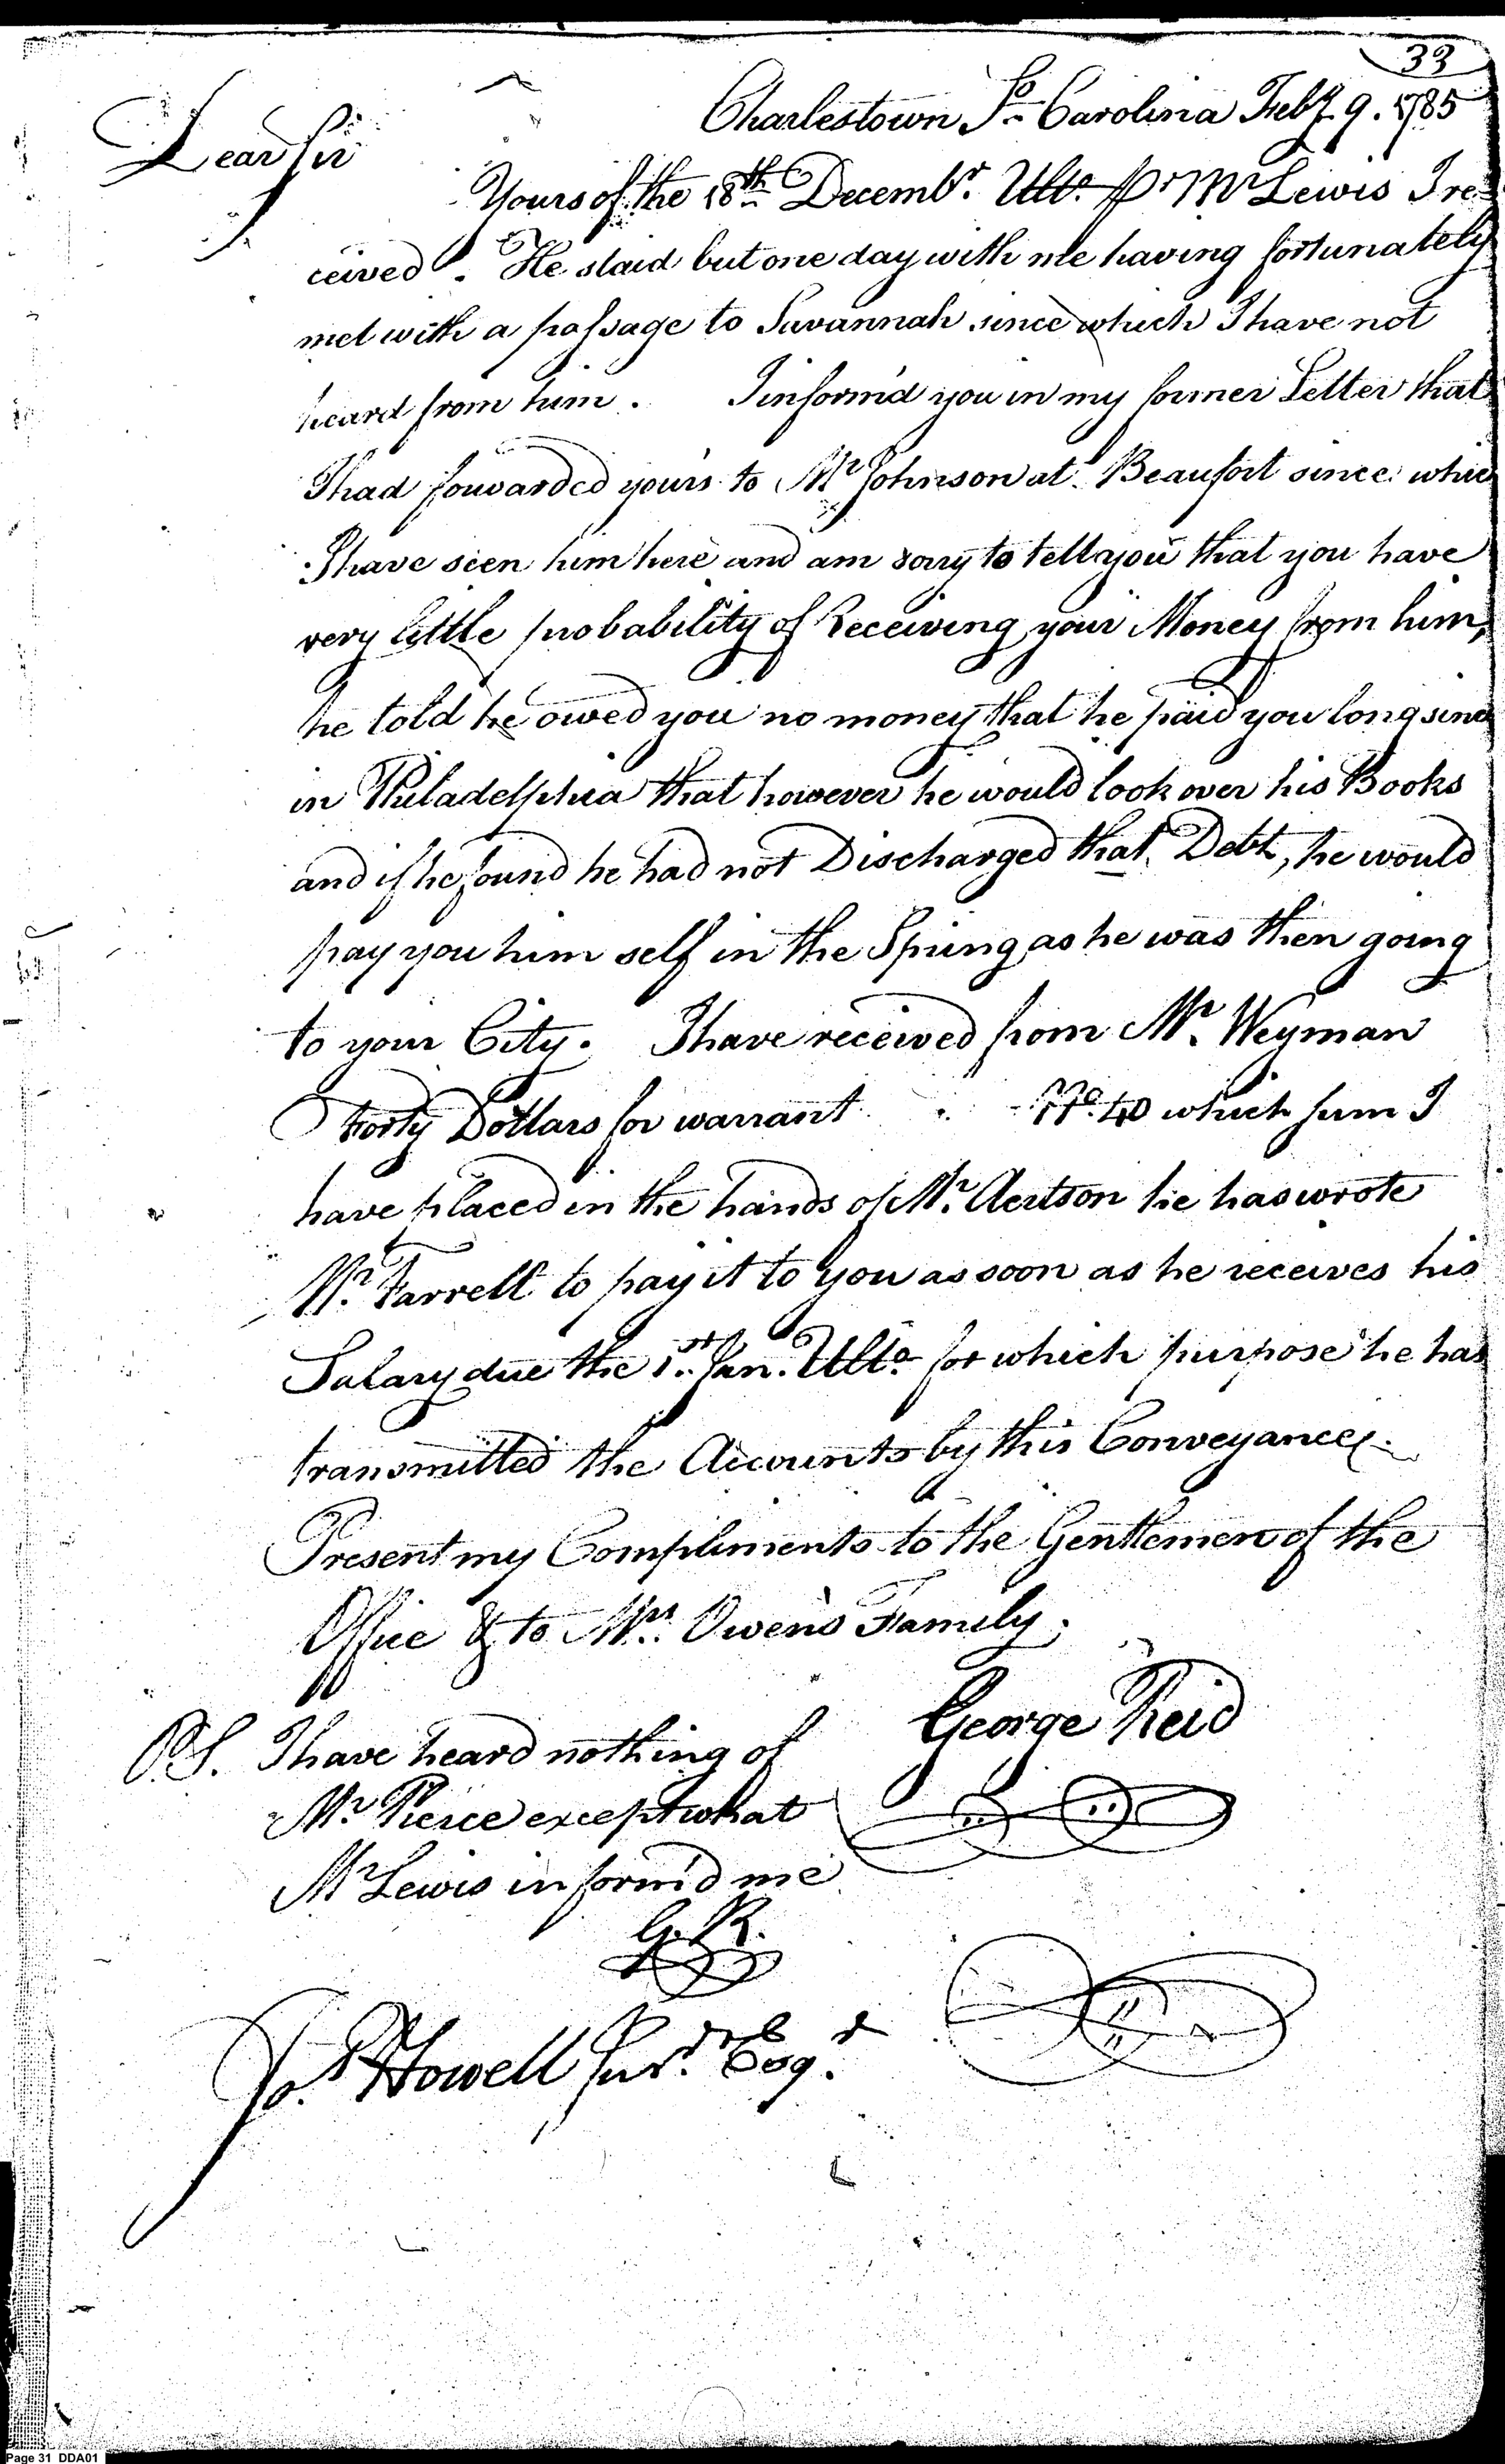 33
Charlestown So. Carolina Feby. 9. 1785
Dear Sir
Yours of the 18th Decembr. Ulto. pr Mr Lewis I re-
ceived. He staid but one day with me having fortunately
met with a passage to Savannah since which I have not
heard from him. I inform'd you in my former Letter that
I had forwarded yours to Mr Johnson at Beaufort since whic
I have seen him here and am sorry to tell you that you have
very little probability of Receiving your Money from him,
he told he owed you no money that he paid you long since
in Philadelphia that however he would look over his Books
and if he found he had not Discharged that Debt, he would
pay you him self in the Spring as he was then going
to your City. I have received from Mr. Weyman
Forty Dollars for warrant No. 40 which sum I
have placed in the hands of Mr. Aertson he has wrote
Mr. Farrell to pay it to you as soon as he receives his
Salary due the 1st. Jan. Ulto. for which purpose he has
transmitted the Accounts by this Conveyance.
Present my Compliments to the Gentlemen of the
Office & to Mrs. Owens Family.
George Reid
P.S. I have heard nothing of
Mr. Pierce except what
Mr Lewis inform'd me
G. R.
Jos. Howell Junr. Esqr.
Page 31 DDA01